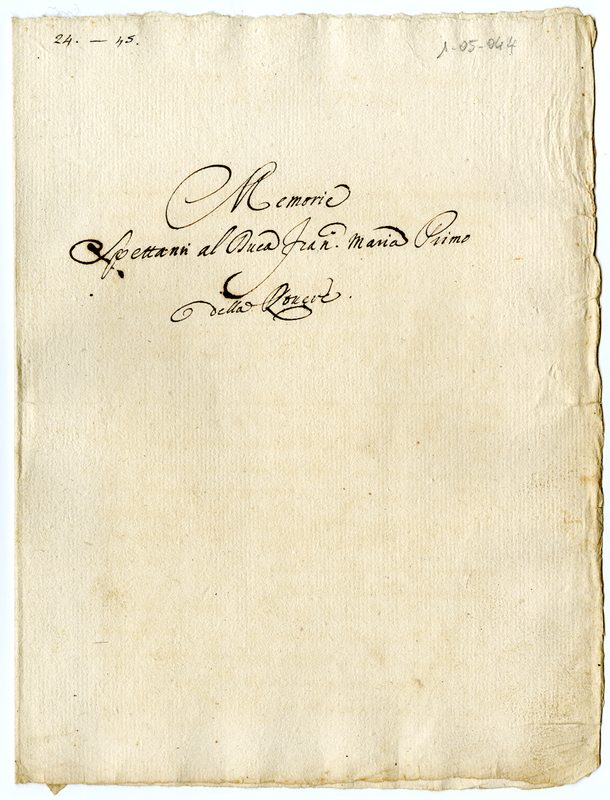 24. — 45.
1-05-044
Memorie
Spettanti al Duca Fran. Maria Primo
della Rovere.